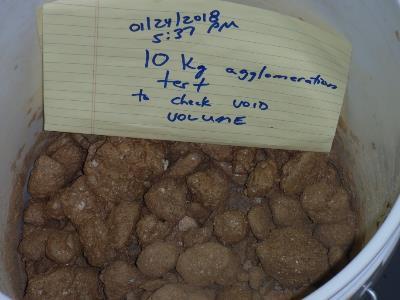 01/24/2018
5:37 PM
10 Kg agglomeration
test
to check VOID
VOLUME